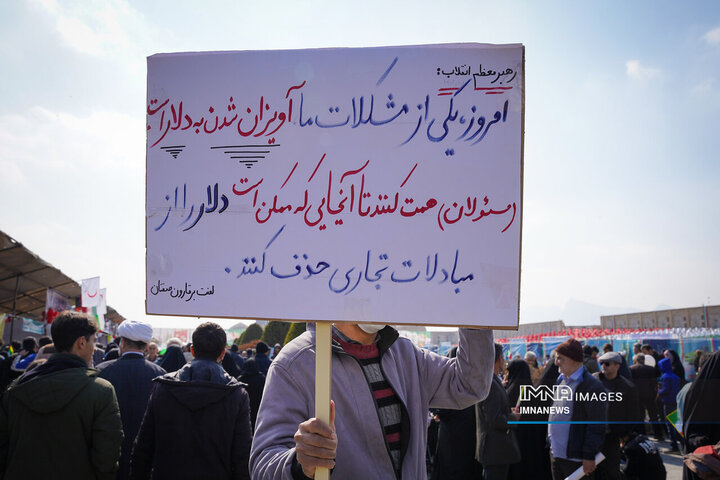 رهبر معظم انقلاب:
امروز، یکی از مشکلات ما آویزان شدن به دلار است
(مسئولان) همت کنند تا آنجایی که ممکن است دلار را از
مبادلات تجاری حذف کنند.
لعنت بر قارون صفتان
IMNA IMAGES
IMNANEWS